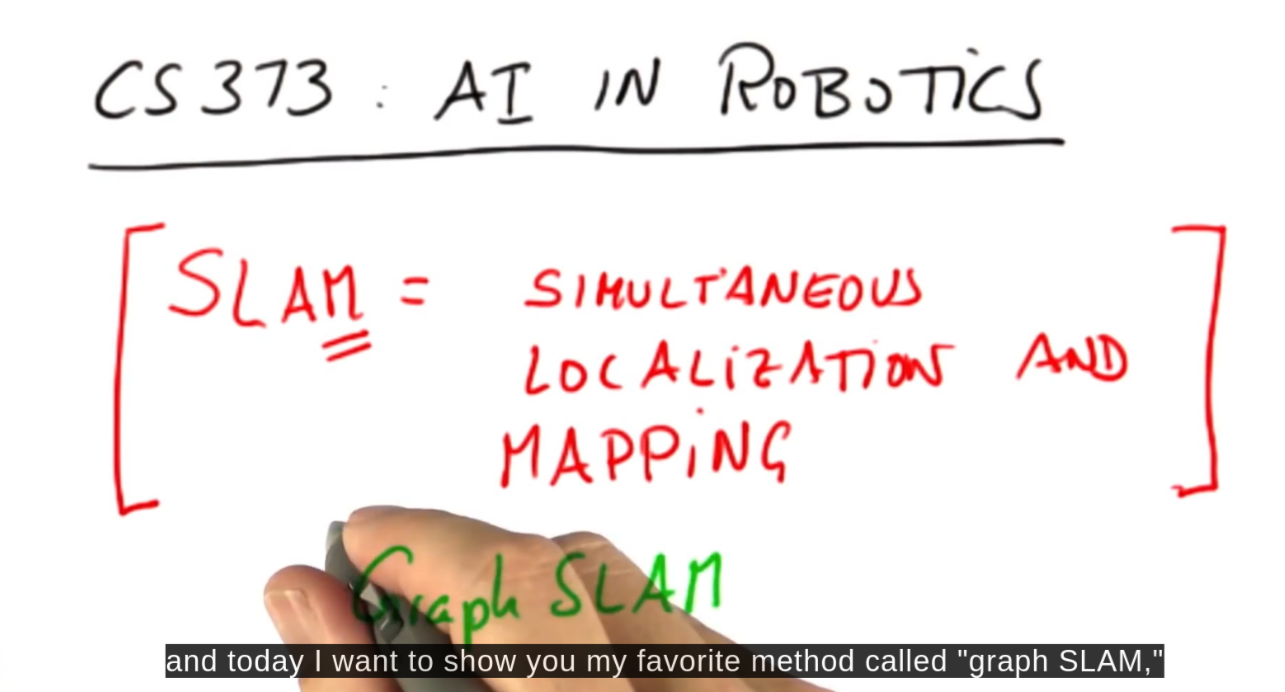 CS373: AI IN ROBOTICS
SLAM = SIMULTANEOUS
LOCALIZATION AND
MAPPING
Graph SLAM
and today I want to show you my favorite method called "graph SLAM,"